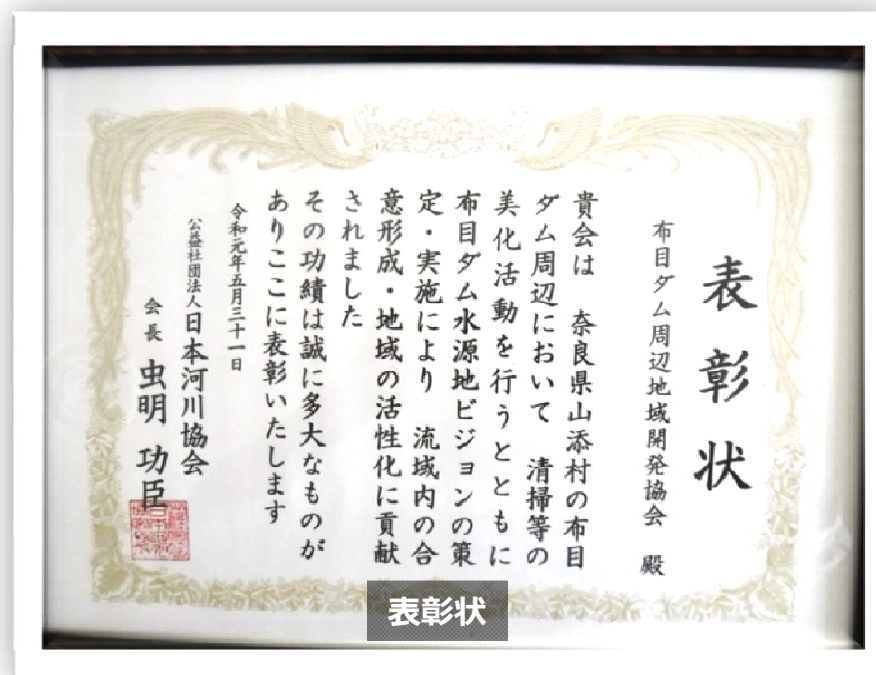 表彰状
布目ダム周辺地域開発協会 殿
貴会は 奈良県山添村の布目
ダム周辺において 清掃等の
美化活動を行うとともに
布目ダム水源地ビジョンの策
定・実施により 流域内の合
意形成・地域の活性化に貢献
されました
その功績は誠に多大なものが
ありここに表彰いたします
令和元年五月三十一日
公益社団法人日本河川協会
会長 虫明 功臣
表彰状